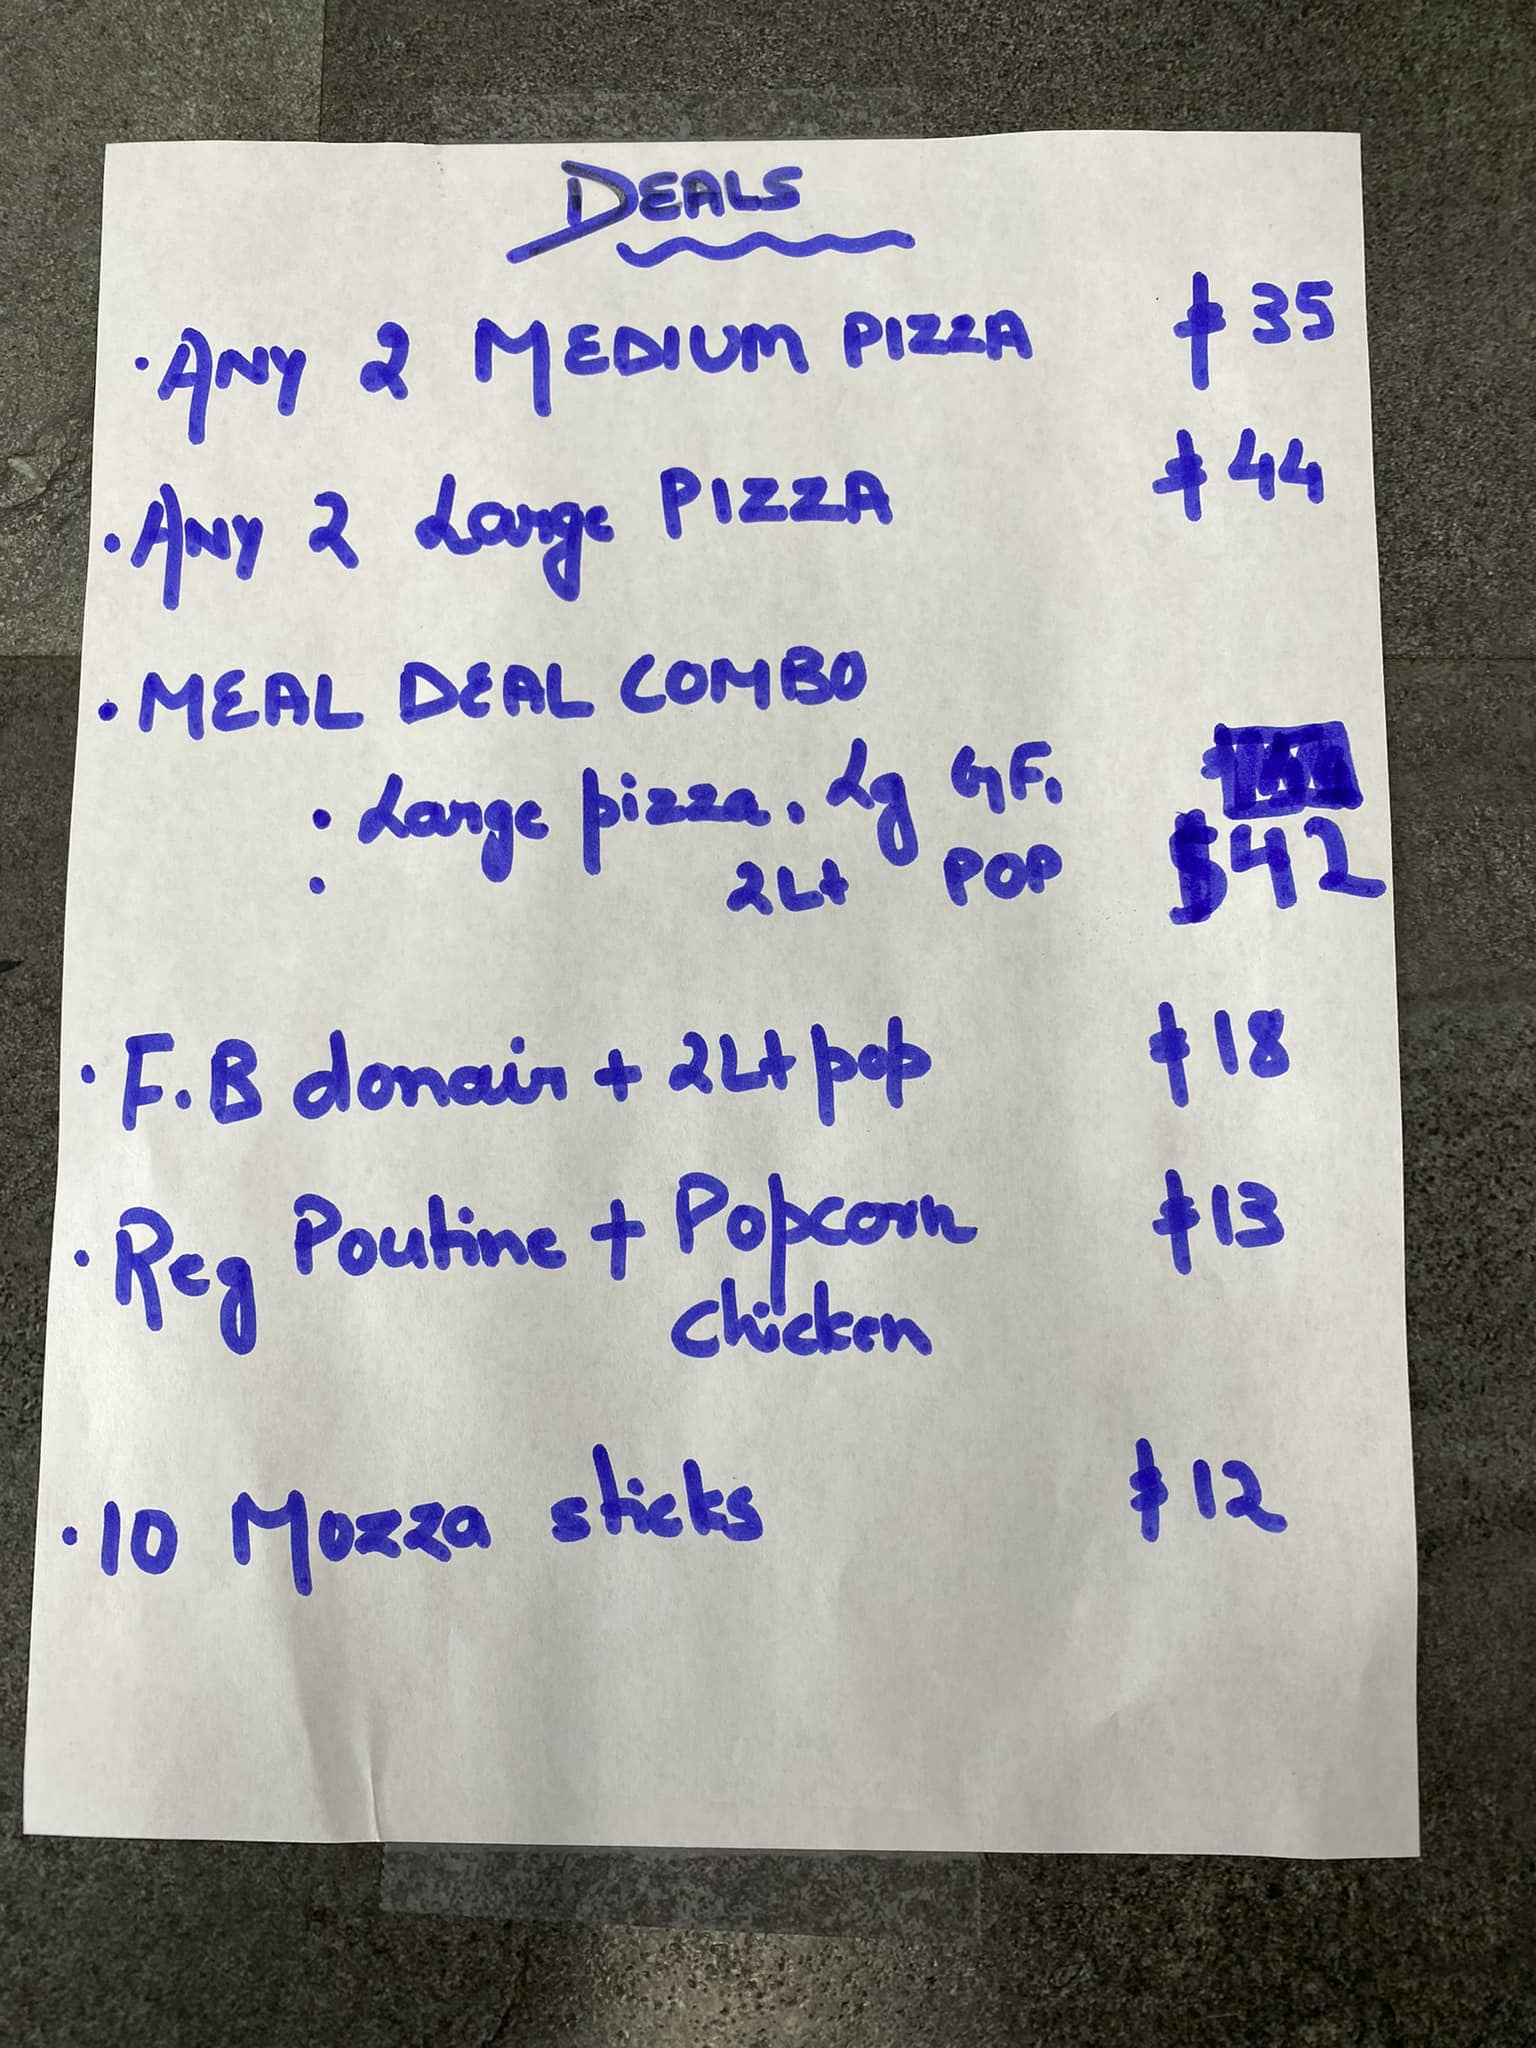 DEALS
• ANY 2 MEDIUM PIZZA $35
• ANY 2 Large PIZZA $44
• MEAL DEAL COMBO
• Large pizza. Lg G.F.
• 2Lt POP $42
• F.B donair + 2Lt pop $18
• Reg Poutine + Popcorn $13
chicken
• 10 Mozza sticks $12